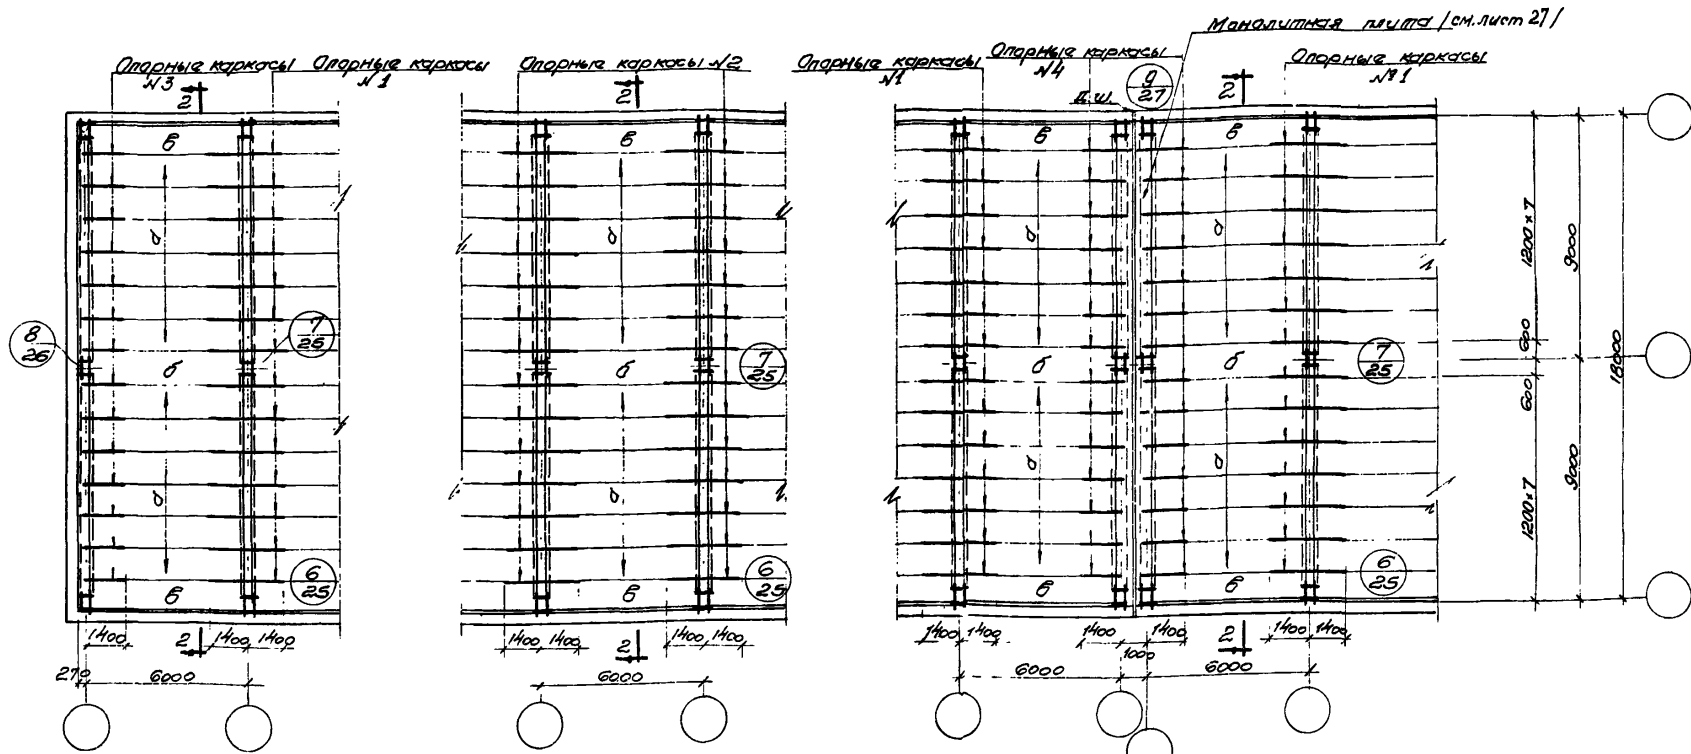 Монолитная плита /см. лист 27/
Опорные каркасы
№3
Опорные каркасы
№1
Опорные каркасы №2
Опорные каркасы
№1
Опорные каркасы
№4
Опорные каркасы
№1
Д.ш.
9
27
2
2
2
в
в
в
в
а
а
а
а
8
26
7
25
7
25
7
25
б
б
б
б
а
а
а
а
6
25
6
25
6
25
в
в
в
в
2
2
2
1200×7
9000
600
18000
600
9000
1200×7
1400
1400
1400
1400
1400
1400
1400
1400
1400
1400
1400
1400
1400
1000
270
6000
6000
6000
6000